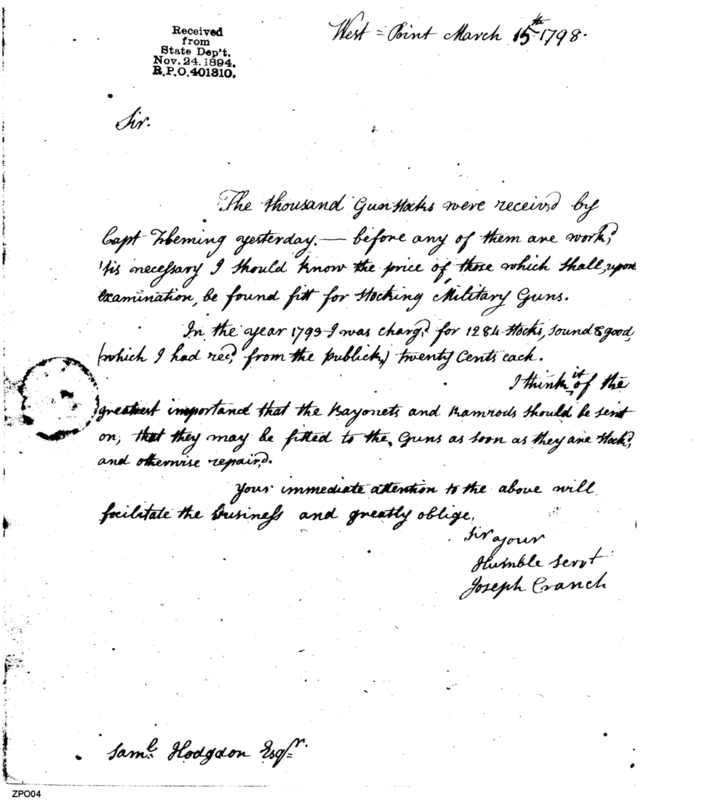 Received
from
State Dep't.
Nov. 24. 1894.
R.P.O. 401310.
West = Point March 15th 1798.
Sir.
The thousand Gunstocks were receiv'd by
Capt Fleming yesterday. — before any of them are work'd
'tis necessary I should know the price of those which shall, upon
examination, be found fitt for stocking Military Guns.
In the year 1793 I was charg'd for 1284 stocks, sound & good,
(which I had rec'd from the publick,) twenty Cents each.
I think it of the
greatest importance that the Bayonets and Ramrods should be sent
on, that they may be fitted to the Guns as soon as they are stock'd
and otherwise repair'd.
Your immediate attention to the above will
facilitate the business and greatly oblige,
Sir your
Humble Servt
Joseph Cranch
Saml. Hodgdon Esqr.
ZPO04